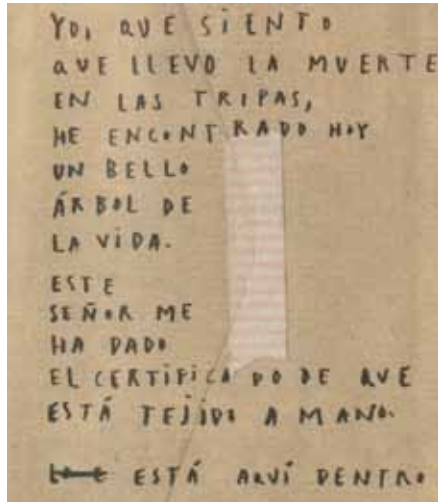 YO, QUE SiENTO
QUE LLEVO LA MUERTE
EN LAS TRIPAS,
HE ENCONTRADO HOY
UN BELLO
ÁRBOL DE
LA ViDA.
ESTE
SEÑOR ME
HA DADO
EL CERTiFiCADO DE QUE
ESTÁ TEJIDO A MANO.
ESTÁ AQUÍ DENTRO